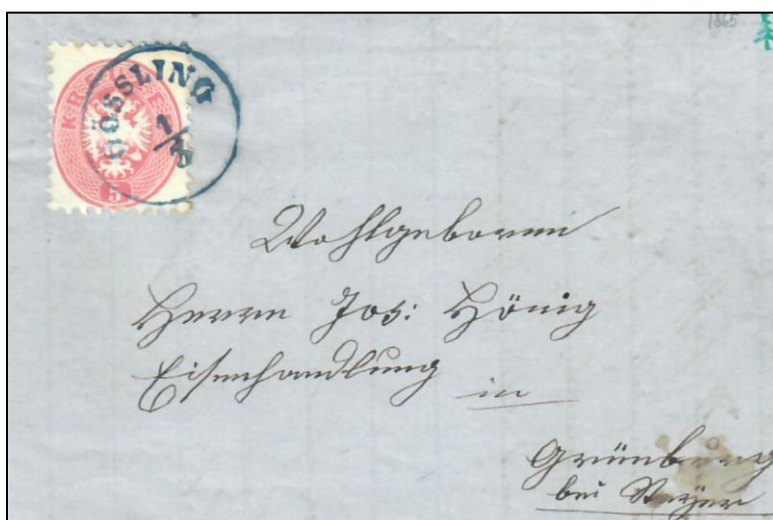 1865
KREUZER
5
GÖSSLING
1/9
Wohlgeboren
Herrn Jos: Hönig
Eisenhandlung in
Grünberg
bei Steyer